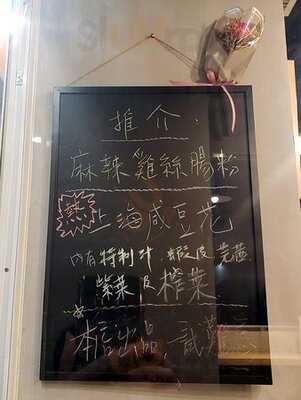 推介
麻辣雞絲腸粉
熱 上海咸豆花
內有特制汁 蝦皮 芫茜
紫菜及榨菜
本店出品, 試